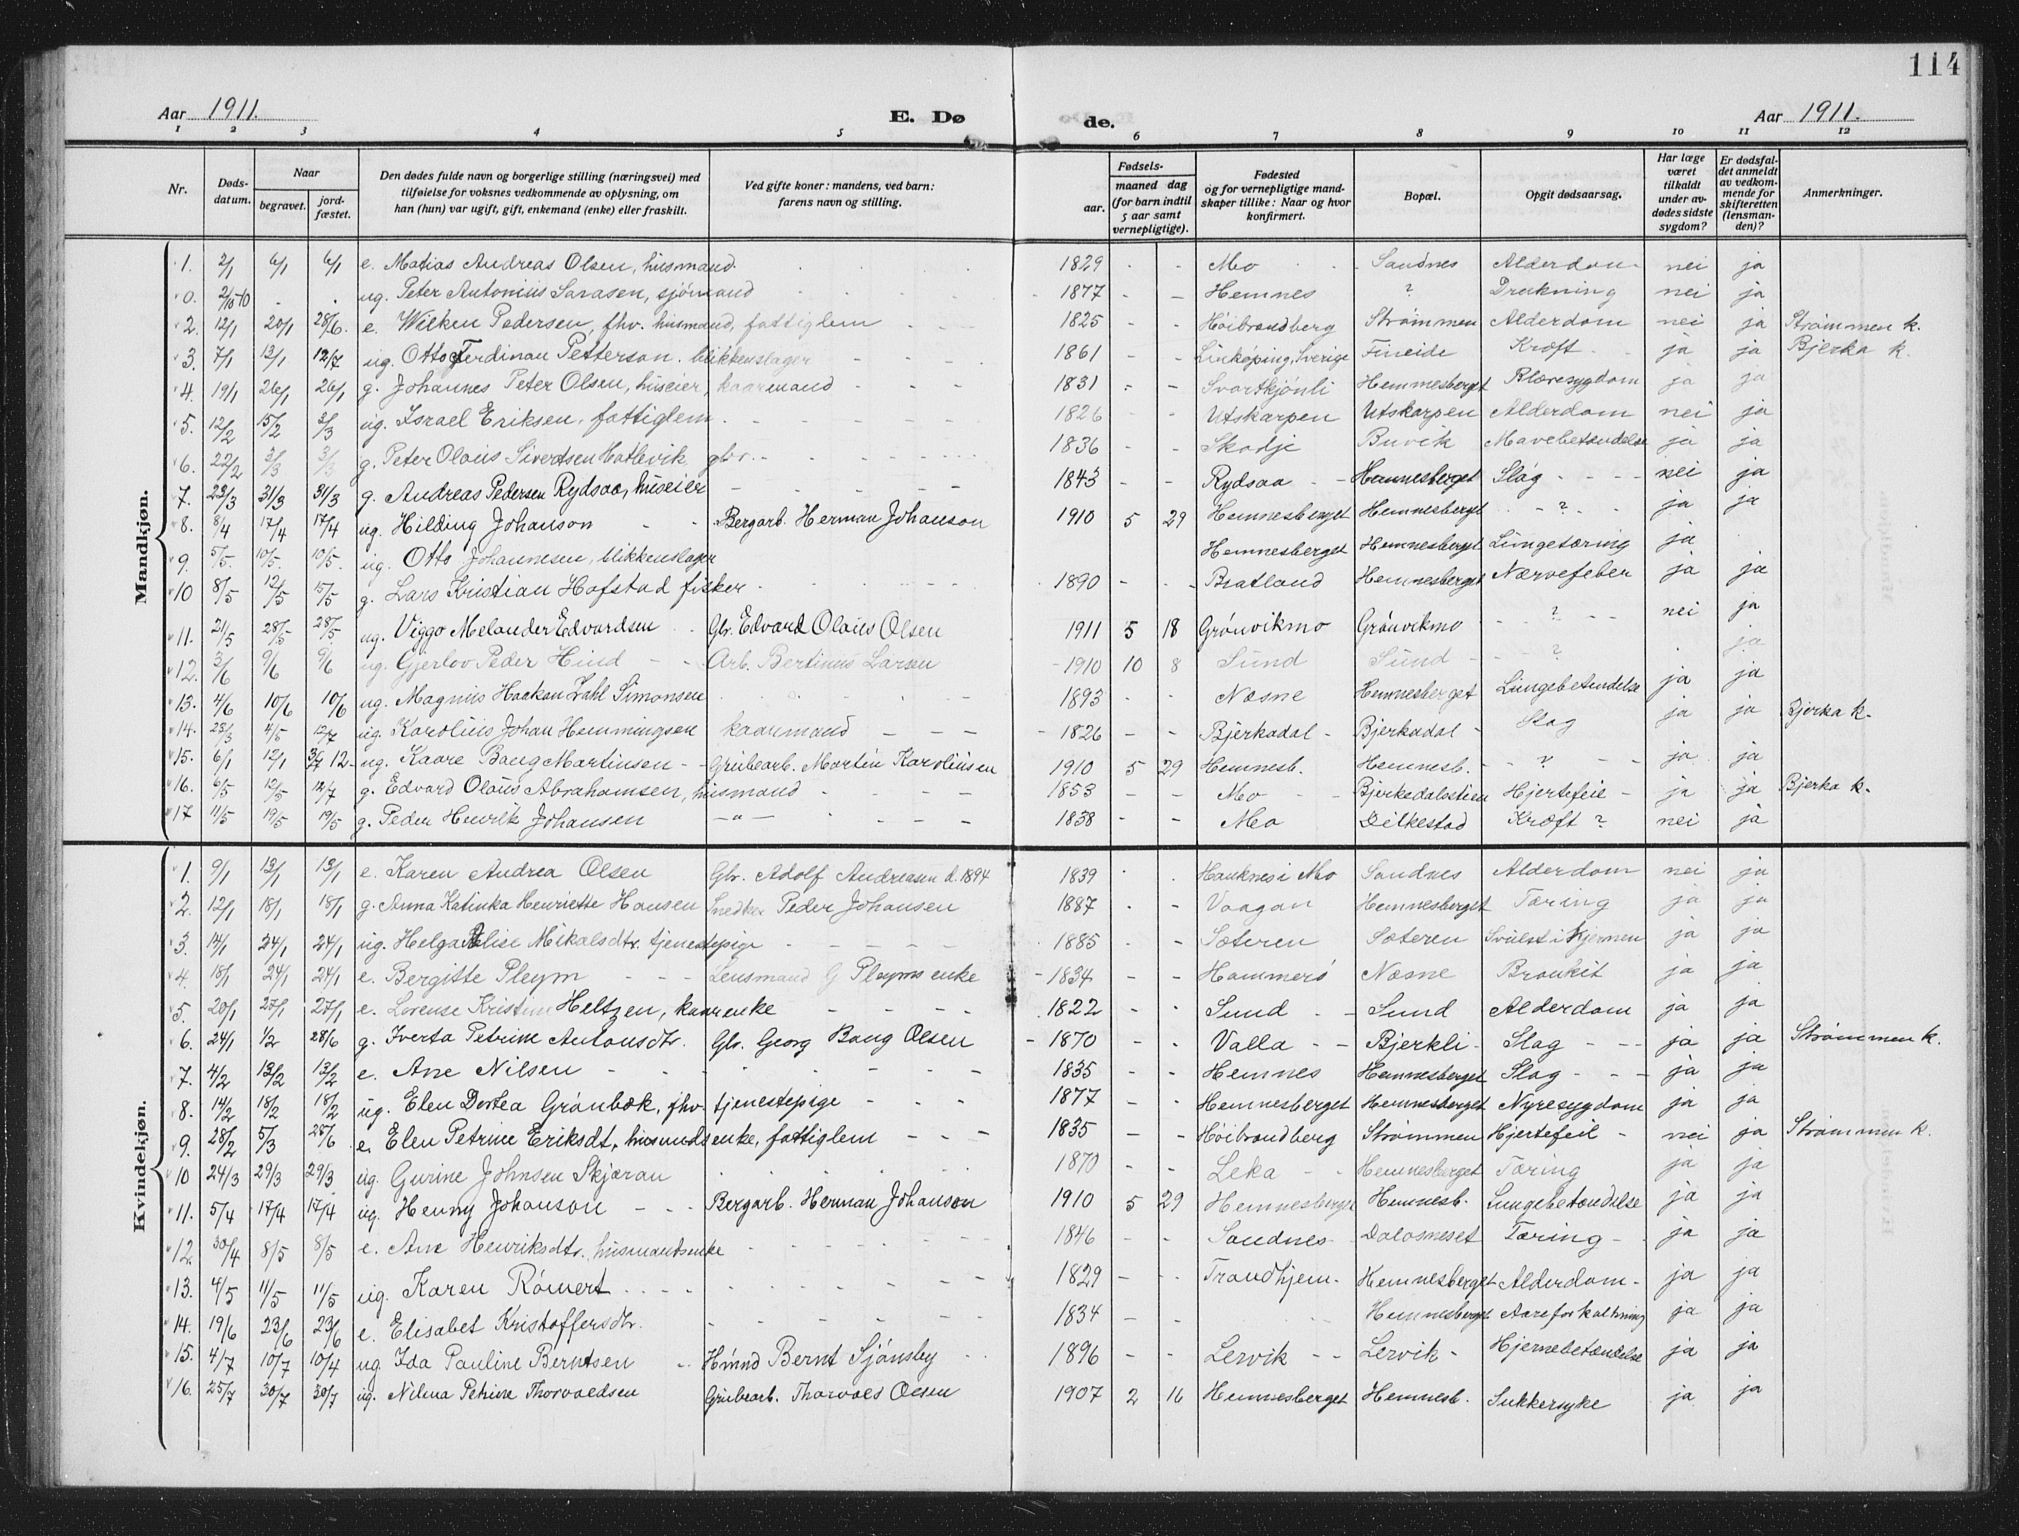 114
Aar 1911. E. Dø de. Aar 1911.
1 2 3 4 5 6 7 8 9 10 11 12
Nr.
Døds-
datum.
Naar
begravet.
jord-
fæstet.
Den dødes fulde navn og borgerlige stilling (næringsvei) med
tilføielse for voksnes vedkommende av oplysning, om
han (hun) var ugift, gift, enkemand (enke) eller fraskilt.
Ved gifte koner: mandens, ved barn:
farens navn og stilling.
Fødsels-
aar.
maaned dag
(for barn indtil
5 aar samt
vernepligtige).
Fødested
og for vernepligtige mand-
skaper tillike: Naar og hvor
konfirmert.
Bopæl.
Opgit dødsaarsag.
Har læge
været
tilkaldt
under av-
dødes sidste
sygdom?
Er dødsfal-
det anmeldt
av vedkom-
mende for
skifteretten
(lensman-
den)?
Anmerkninger.
Mandkjøn.
1. 2/1 6/1 6/1 e. Matias Andreas Olsen, husmand. 1829 - - Mo Sandnes Alderdom nei ja
0. 2/10-10 - - ug. Peter Antonius Sarasen, sjømand 1877 - - Hemnes ? Drukning nei ja
2. 12/1 20/1 28/6. e. Wilken Pedersen, fhv. husmand, fattiglem 1825 - - Høibrandberg Strømmen Alderdom nei ja Strømmen k.
3. 7/1 13/1 12/7 ug. Otto Ferdinan Petterson. blikkenslager 1861 - - Linkøping, Sverige Fineide Kræft ja ja Bjerka k.
4. 19/1 26/1 26/1 g. Johannes Peter Olsen, huseier, kaarmand 1831 - - Svartkjønli Hemnesberget Blæresygdom ja ja
5. 12/2 15/2 3/3 ug. Israel Eriksen, fattiglem 1826 - - Utskarpen Utskarpen Alderdom nei ja
6. 22/2 3/3 3/3 g. Peter Olaus Sivertsen Hatlevik gbr. 1836 - - Skodje Buvik Mavebetændelse ja ja
7. 23/3 31/3 31/3 g. Andreas Pedersen Rydsaa, huseier 1843 - - Rydsaa Hemnesberget Slag nei ja
8. 8/4 17/4 17/4 ug. Hilding Johanson Bergarb. Herman Johanson 1910 5 29 Hemnesberget Hemnesberget ? ja ja
9. 5/5. 10/5. 10/5. ug. Otto Johannesen, blikkenslager Hemnesberget Hemnesberget Lungetæring ja
10 8/5 12/5 15/5 g. Lars Kristian Hofstad fisker 1890 - - Bratland Hemnesberget Nærvefeber ja ja
11. 21/5 28/5 28/5 ug. Viggo Melander Edvardsen Gbr. Edvard Olaus Olsen 1911 5 18 Grønvikmo Grønvikmo ? nei ja
12. 3/6 9/6 9/6 ug. Gjerlov Peder Hind Arb. Bertinus Larsen 1910 10 8 Sund Sund ? ja
13. 4/6 10/6 10/6 ug. Magnus Haakan Zahl Simonsen 1893 - - Næsne Hemnesberget Lungebetendelse ja ja
14. 28/3 4/5 12/7 ug. Karolius Johan Hemmingsen kaarmand 1826 - - Bjerkadal Bjerkadal Slag ja ja Bjerka k.
15. 6/1 12/1 3/7 12 ug. Kaare Bang Martinsen Grubearb. Martin Karoliusen 1910 5 29 Hemnesb. Hemnesb. ? ja ja
16. 6/5 12/5 12/7 g. Edvard Olaus Abrahamsen, husmand 1853 - - Mo Bjerkedalsstien Hjertefeil ja ja Bjerka k.
17 11/5 19/5 19/5 g. Peder Henrik Johansen —"— 1838 - - Mo Dilkestad Kræft ? nei ja
Kvindekjøn.
1. 9/1 13/1 13/1 e. Karen Andrea Olsen Gbr. Adolf Andreasen d. 1894 1839 - - Hauknes i Mo Sandnes Alderdom nei ja
2. 12/1 18/1 18/1 g. Anna Katinka Henriette Hansen Snedker Peder Johansen 1887 - - Vaagan Hemnesberget Tæring ja ja
3. 14/1 24/1 24/1 ug. Helga Elise Mikalsdtr. tjenestepige 1885 - - Sæteren Sæteren Svulst i Hjernen ja ja
4. 18/1 24/1 24/1 e. Bergitte Pleym Lensmand G Pleyms enke 1834 - - Hammerø Næsne Bronkit ja ja
5. 20/1 27/1 27/1 e. Lorense Kristine Heltzen, kaarenke 1822 - - Sund Sund Alderdom ja ja
6. 24/1 1/2 28/6 g. Iverta Petrine Antonsdtr. Gbr. Georg Bang Olsen 1870 - - Valla Bjerkli Slag ja ja Strømmen k.
7. 4/2 13/2 13/2 e. Ane Nilsen 1835 - - Hemnes Hemnesberget Slag ja ja
8. 14/2 18/2 18/2 ug. Elen Dortea Grønbæk, fhv. tjenestepige 1877 - - Hemnesberget Hemnesberget Nyresygdom ja ja
9. 28/2 5/3 28/6 e. Elen Petrine Eriksdt, husmandsenke, fattiglem 1835 - - Høibrandberg Strømmen Hjertefeil nei ja Strømmen k.
10 24/3 29/3 29/3 ug. Gurine Johnsen Skjæran 1870 - - Leka Hemnesberget Tæring ja ja
11. 5/4 17/4 17/4 ug. Henny Johanson Bergarb. Herman Johanson 1910 5 29 Hemnesberget Hemnesb. Lungebetændelse ja ja
12. 30/4 8/5 8/5 e. Ane Henriksdtr. husmandsenke 1846 - - Sandnes Dalosneset Tæring ja ja
13. 4/5 11/5 11/5 ug. Karen Rømert 1829 - - Trondhjem Hemnesberget Alderdom ja ja
14. 19/6 23/6 23/6 e. Elisabet Kristoffersdtr. 1834 - - Hemnesberget Aareforkalkning ja ja
15. 4/7 10/7 10/4 ug. Ida Pauline Berntsen Hmnd Bernt Sjønsby 1896 - - Lervik Lervik Hjernebetændelse ja ja
16. 25/7 30/7 30/7 ug. Nilma Petrine Thorvaldsen Grubearb. Thorvald Olsen 1907 2 16 Hemnesberget Hemnesb. Sukkersyke ja ja